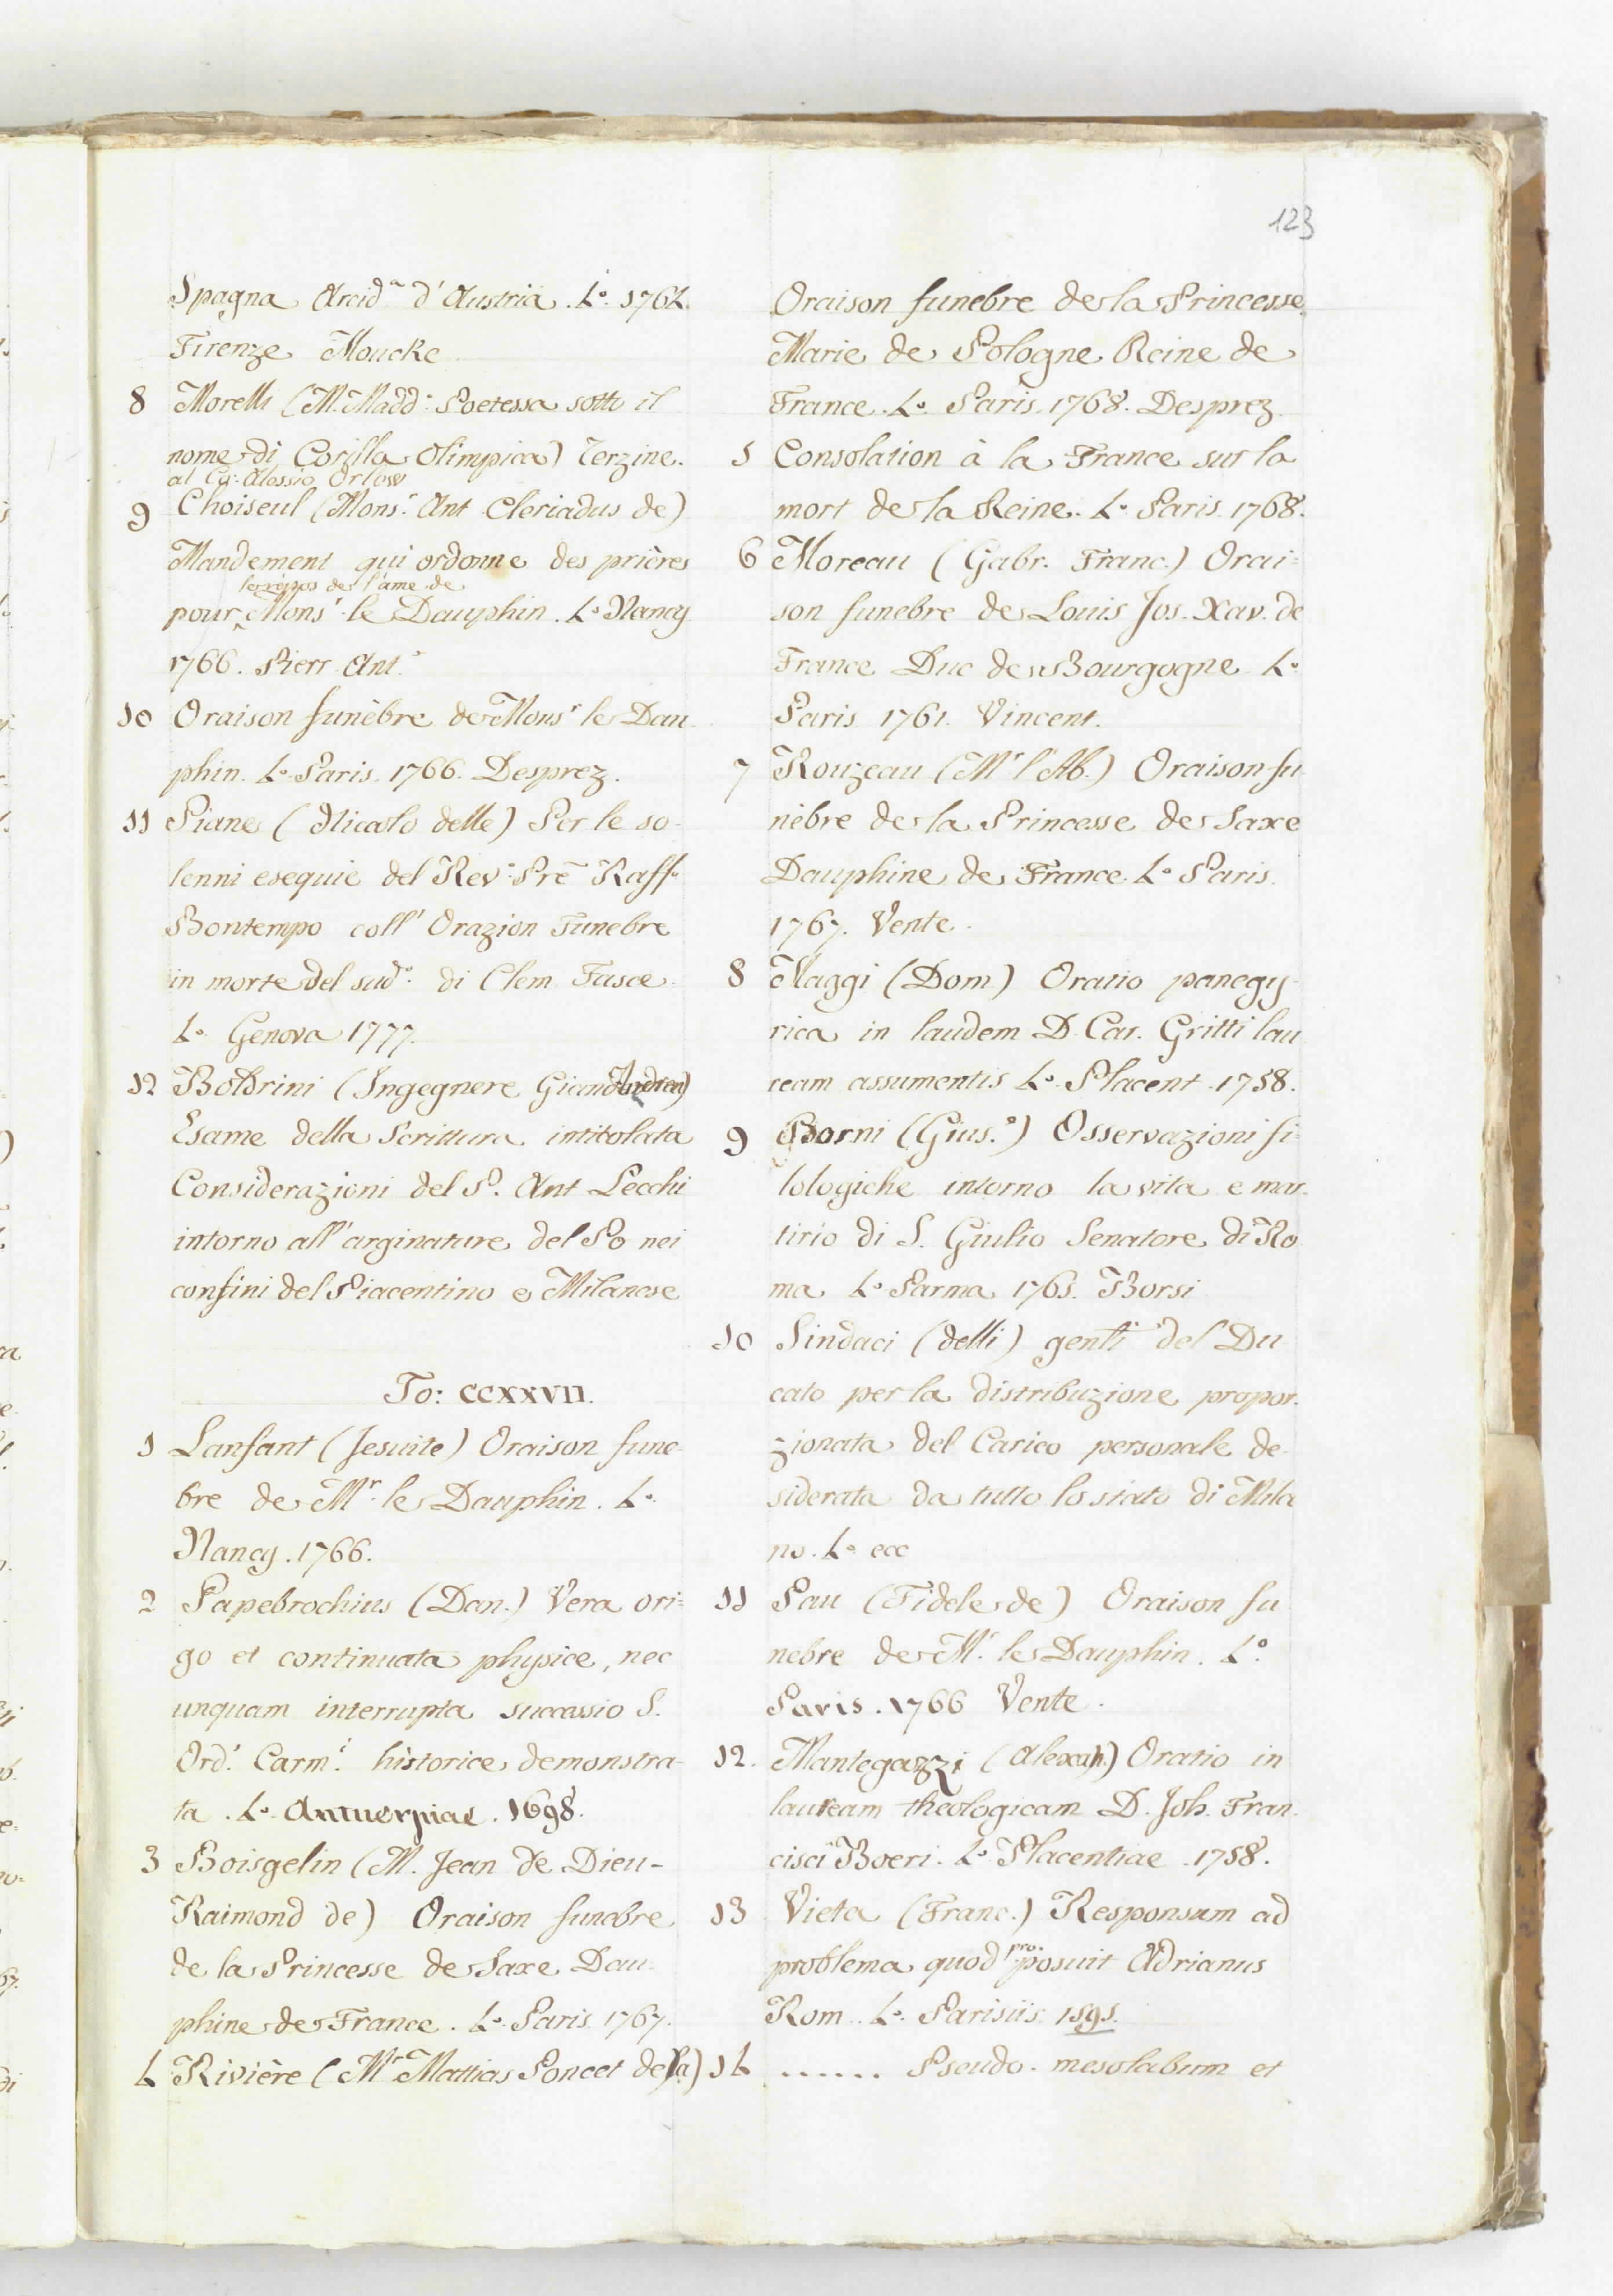 123
Spagna Arcid.ª d'Austria. 4.º 1764.
Firenze Moucke
8 Morelli (M. Madd.ª Poetessa sotto il
nome di Corilla Olimpica) Terzine.
al Co: Alessio Orlow
9 Choiseul (Mons.r Ant Cleriadus de)
Mandement qui ordonne des prières
le repos de l'ame de
pour Mons.r le Dauphin. 4.º Nancy
1766. Pierr Ant.
10 Oraison funèbre de Mons.r le Dau
phin. 4.º Paris. 1766. Desprez.
11 Piane (Niccolo delle) Per le so-
lenni esequie del Rev: Prē Raff.º
Bontempo coll' Orazion Funebre
in morte del sud.º di Clem Fasce
4.º Genova 1777.
12 Boldrini (Ingegnere Giand'Andrea)
Esame della Scrittura intitolata
Considerazioni del P. Ant Lecchi
intorno all'arginature del Po nei
confini del Piacentino e Milanese
To: CCXXVII.
1 Lanfant (Jesuite) Oraison fune-
bre de M.r le Dauphin. 4.º
Nancy. 1766.
2 Papebrochius (Dan.) Vera ori=
go et continuata physice, nec
unquam interrupta successio S.
Ord.i Carm.i historice demonstra-
ta. 4.º Antuerpiae. 1698.
3 Boisgelin (M. Jean de Dieu-
Raimond de) Oraison funebre
de la Princesse de Saxe Dau
phine de France. 4.º Paris 1767.
4 Rivière (M.r Mattias Poncet de la)
Oraison funebre de la Princesse
Marie de Pologne Reine de
France. 4.º Paris. 1768. Desprez
5 Consolation à la France sur la
mort de la Reine. 4.º Paris. 1768.
6 Moreau (Gabr. Franc.) Orai=
son funebre de Louis Jos. Xav. de
France Duc de Bourgogne 4.º
Paris 1761. Vincent.
7 Rouzeau (M.r l'Ab.) Oraison fu
nèbre de la Princesse de Saxe
Dauphine de France 4.º Paris.
1767. Vente.
8 Maggi (Dom) Oratio panegy-
rica in laudem D. Car. Gritti lau
ream assumentis 4.º Placent. 1758.
9 Borni (Gius.e) Osservazioni fi=
lologiche intorno la vita e mar-
tirio di S. Giulio Senatore di Ro
ma 4.º Parma 1761. Borsi
10 Sindaci (delli) gen̄li del Du
cato per la distribuzione propor-
zionata del Carico personale de-
siderata da tutto lo stato di Mila
no. 4.º ecc
11 Pau (Fidele de) Oraison fu
nebre de M.r le Dauphin. 4.º
Paris. 1766 Vente.
12. Mantegazzi (Alexan.) Oratio in
lauream theologicam D. Joh. Fran-
cisci Boeri. 4.º Placentiae. 1758.
13 Vieta (Franc.) Responsum ad
problema quod proposuit Adrianus
Rom.. 4.º Parisiis 1595.
14 ...... Pseudo-mesolabum et